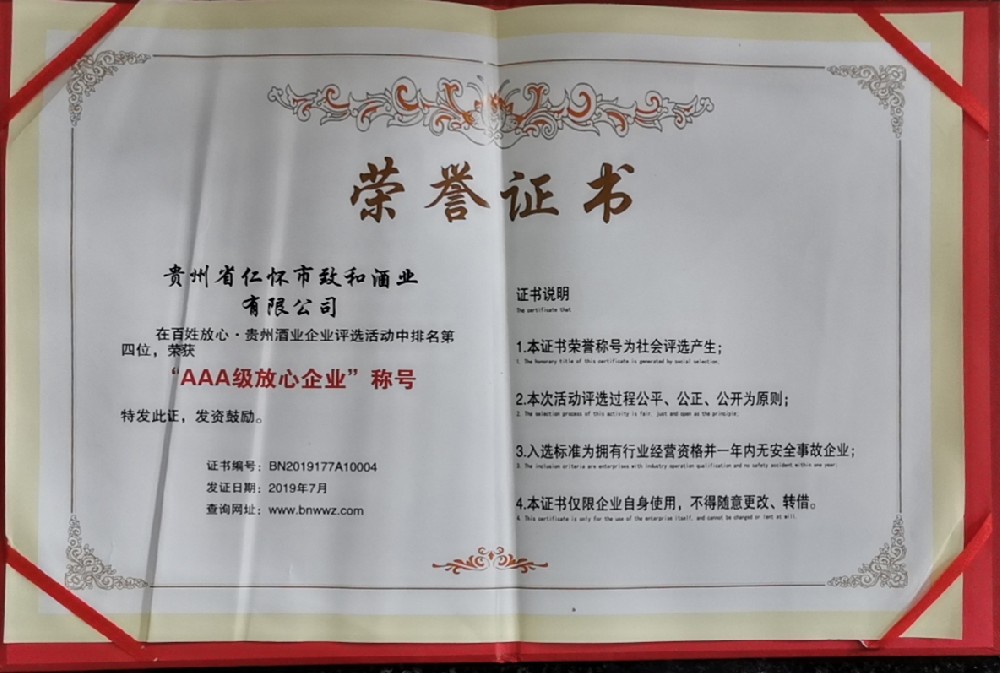 荣誉证书
贵州省仁怀市致和酒业
有限公司
在百姓放心·贵州酒业企业评选活动中排名第
四位，荣获
“AAA级放心企业”称号
特发此证，发资鼓励。
证书编号：BN2019177A10004
发证日期：2019年7月
查询网址：www.bnwwz.com
证书说明
The certificate that
1.本证书荣誉称号为社会评选产生；
1. The honorary title of this certificate is generated by social selection;
2.本次活动评选过程公平、公正、公开为原则；
2. The selection process of this activity is fair, just and open as the principle;
3.入选标准为拥有行业经营资格并一年内无安全事故企业；
3. The inclusion criteria are enterprises with industry operation qualification and no safety accident within one year;
4.本证书仅限企业自身使用，不得随意更改、转借。
4. This certificate is only for the use of the enterprise itself, and cannot be changed or lent at will.